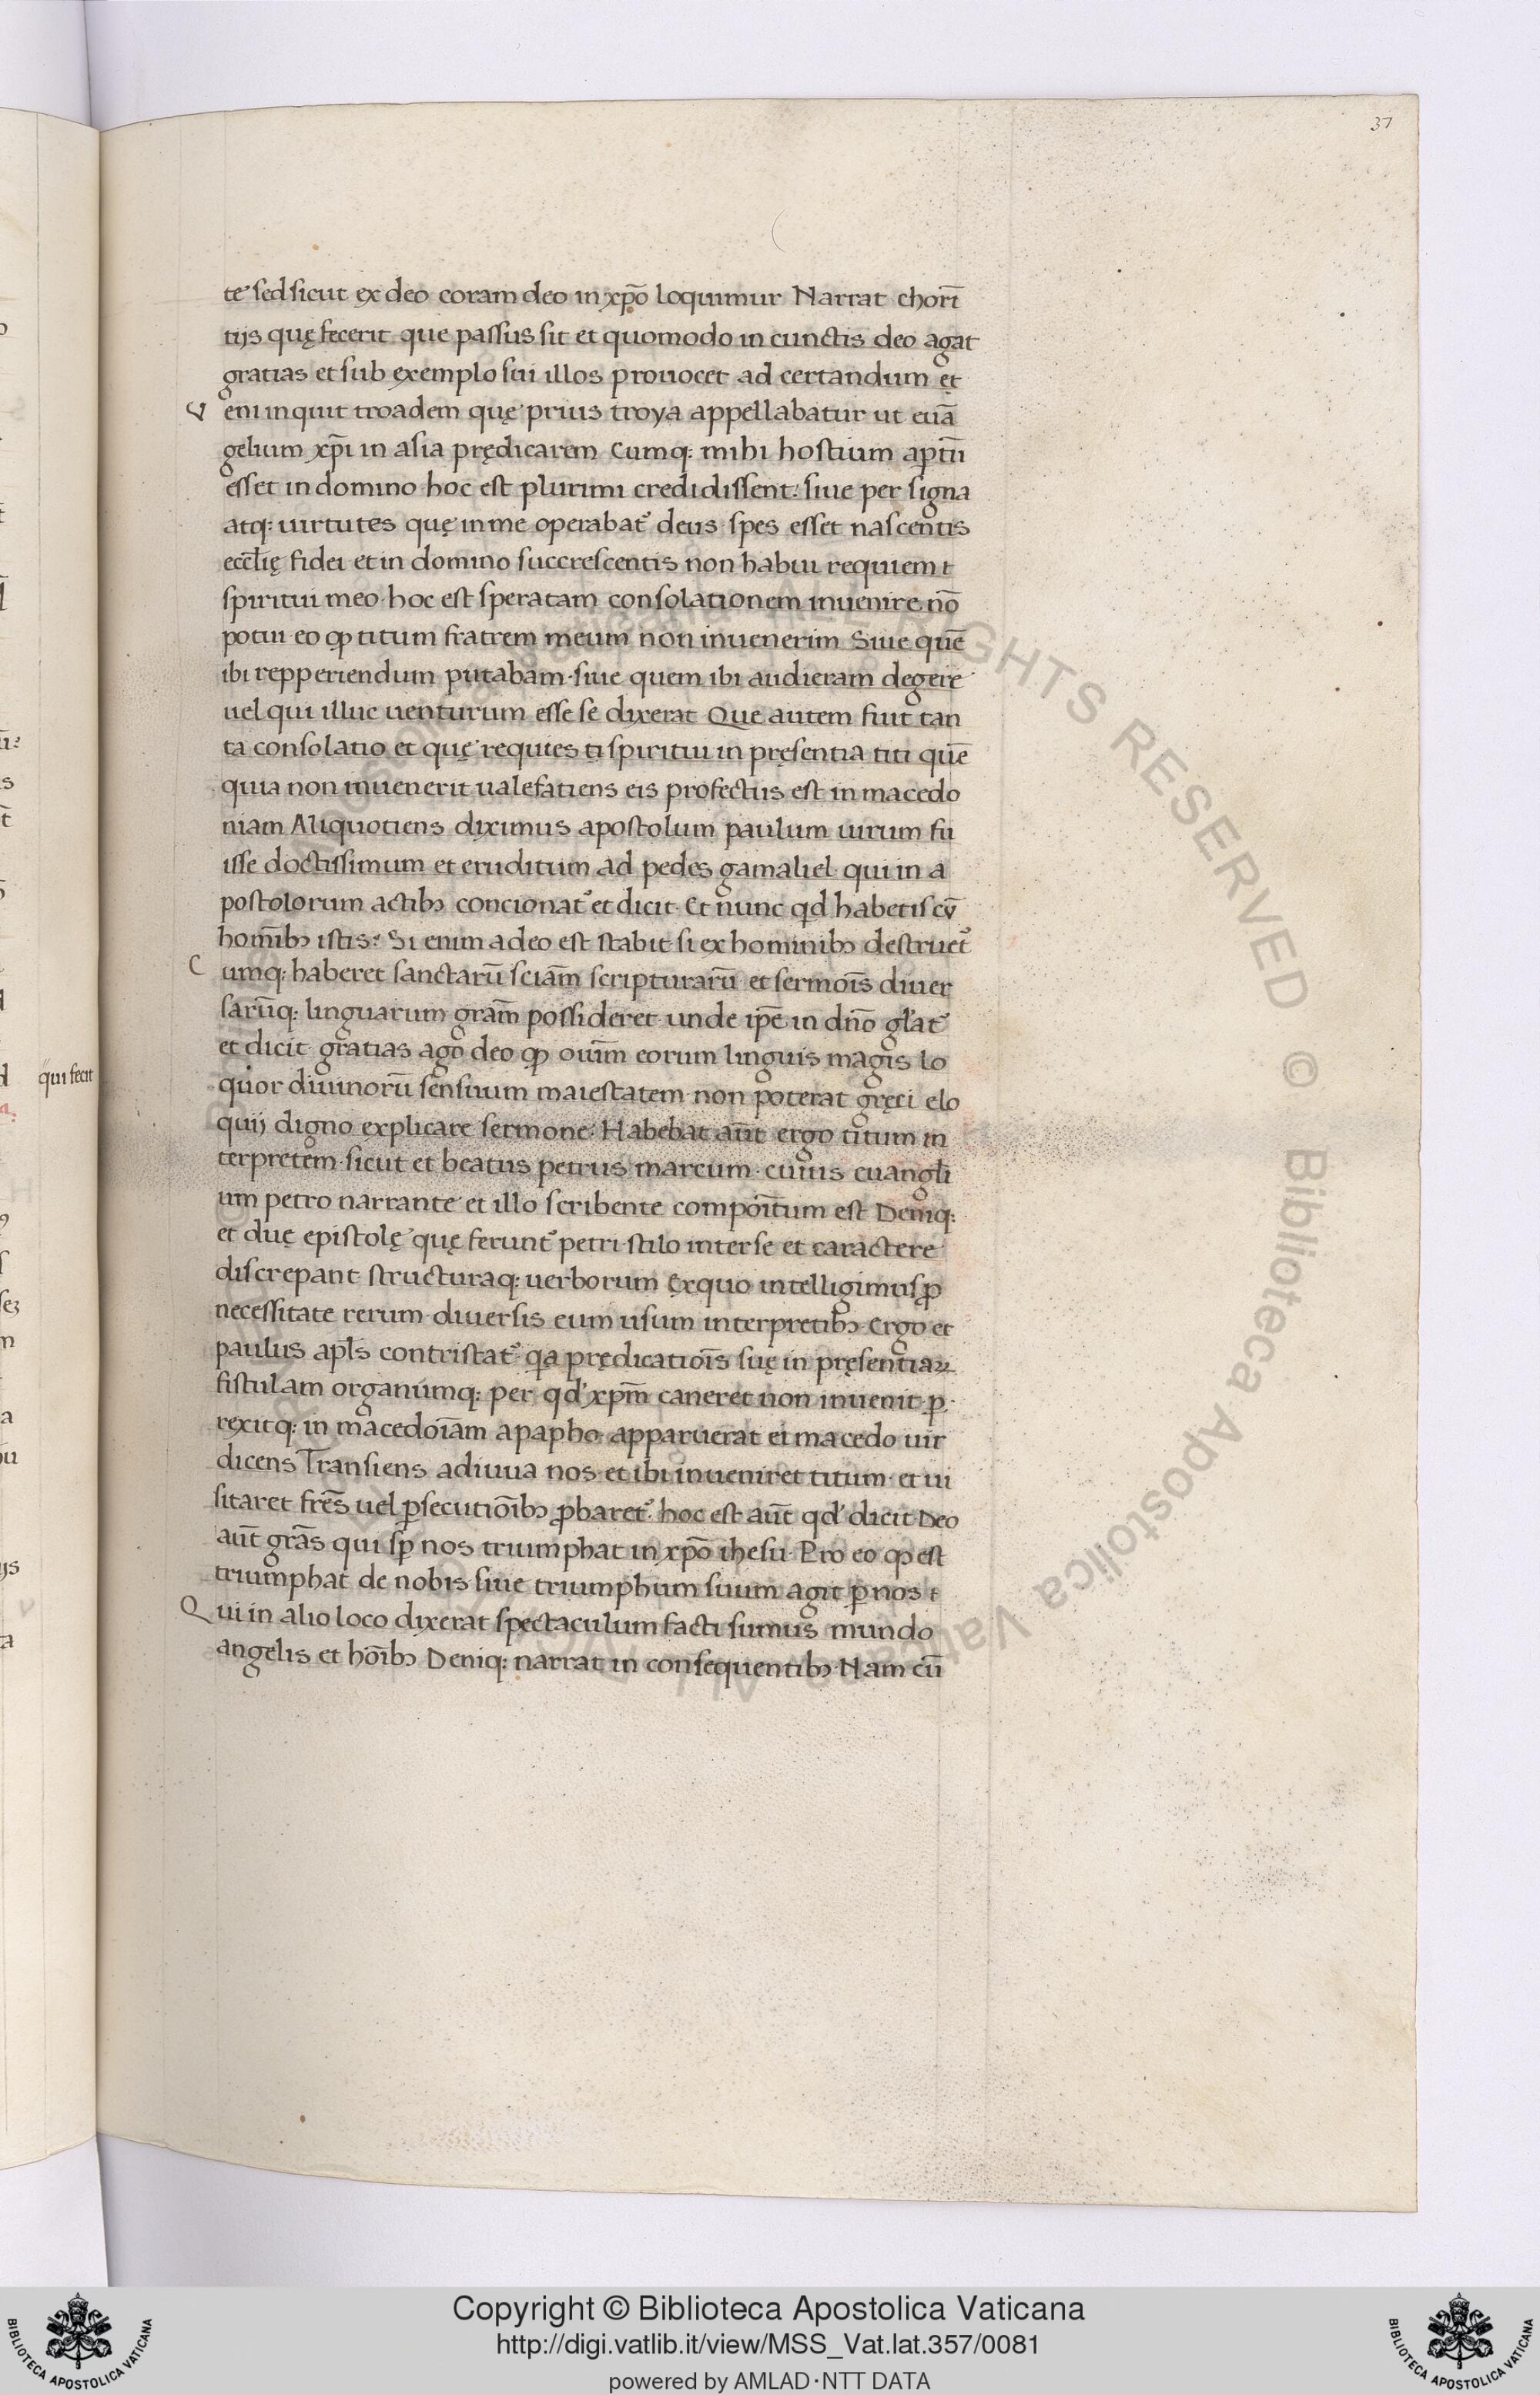 37
te sed sicut ex deo coram deo in xp̄o loquimur Narrat chorī
tijs quę fecerit que passus sit et quomodo in cunctis deo agat
gratias et sub exemplo sui illos prouocet ad certandum et
V eni inquit troadem quę prius troya appellabatur ut euā
gelium xp̄i in asia prędicarem Cumq: mihi hostium aptū
esset in domino hoc est plurimi credidissent: siue per signa
atq: uirtutes quę in me operabat᷑ deus spes esset nascentis
eccl̄ię fidei et in domino succrescentis non habui requiem
spiritui meo hoc est speratam consolationem inuenire nō
potui eo ꝙ titum fratrem meum non inuenerim Siue quē
ibi repperiendum putabam siue quem ibi audieram degere
uel qui illuc uenturum esse se dixerat Que autem fuit tan
ta consolatio et quę requies spiritui in pręsentia titi quē
quia non inuenerit ualefatiens eis profectus est in macedo
niam Aliquotiens diximus apostolum paulum uirum fu
isse doctissimum et eruditum ad pedes gamaliel qui in a
postolorum actibꝫ concionat᷑ et dicit Et nunc qd habetis cū
homībꝫ istis? Si enim a deo est stabit si ex hominibꝫ destruet᷑
C umq: haberet sanctarū sciam̄ scripturarū et sermoīs diuer
sarūq: linguarum gram̄ possideret unde ip̄e in dn̄o gl̄at᷑
et dicit gratias ago deo ꝙ ouīm eorum linguis magis lo
quor diuinorū sensuum maiestatem non poterat gręci elo
quij digno explicare sermone Habebat aūt ergo titum in
terpretem sicut et beatus petrus marcum cuius euangli
um petro narrante et illo scribente compoītum est Deniq:
et duę epistolę quę ferunt᷑ petri stilo inter se et caractere
discrepant structuraq: uerborum Ex quo intelligimus ꝓ
necessitate rerum diuersis eum usum interpretibꝫ Ergo et
paulus apl̄s contristat᷑ qa prędicatioīs suę in pręsentiaꝝ
fistulam organumq: per qd xp̄m caneret non inuenit ꝑ
rexitq: in macedoīam apapho apparuerat ei macedo uir
dicens Transiens adiuua nos et ibi inueniret titum et ui
sitaret fres̄ uel ꝑsecutioībꝫ ꝓbaret᷑ hoc est aūt qd dicit Deo
aūt gras̄ qui sꝑ nos triumphat in xp̄o ihesu Pro eo ꝙ est
triumphat de nobis siue triumphum suum agit ꝑ nos
Q ui in alio loco dixerat spectaculum facti sumus mundo
angelis et hoībꝫ Deniq: narrat in consequentibꝫ Nam cū
qui fecit
ALL RIGHTS RESERVED © Biblioteca Apostolica Vaticana
Copyright © Biblioteca Apostolica Vaticana
http://digi.vatlib.it/view/MSS_Vat.lat.357/0081
powered by AMLAD·NTT DATA
BIBLIOTECA APOSTOLICA VATICANA
BIBLIOTECA APOSTOLICA VATICANA